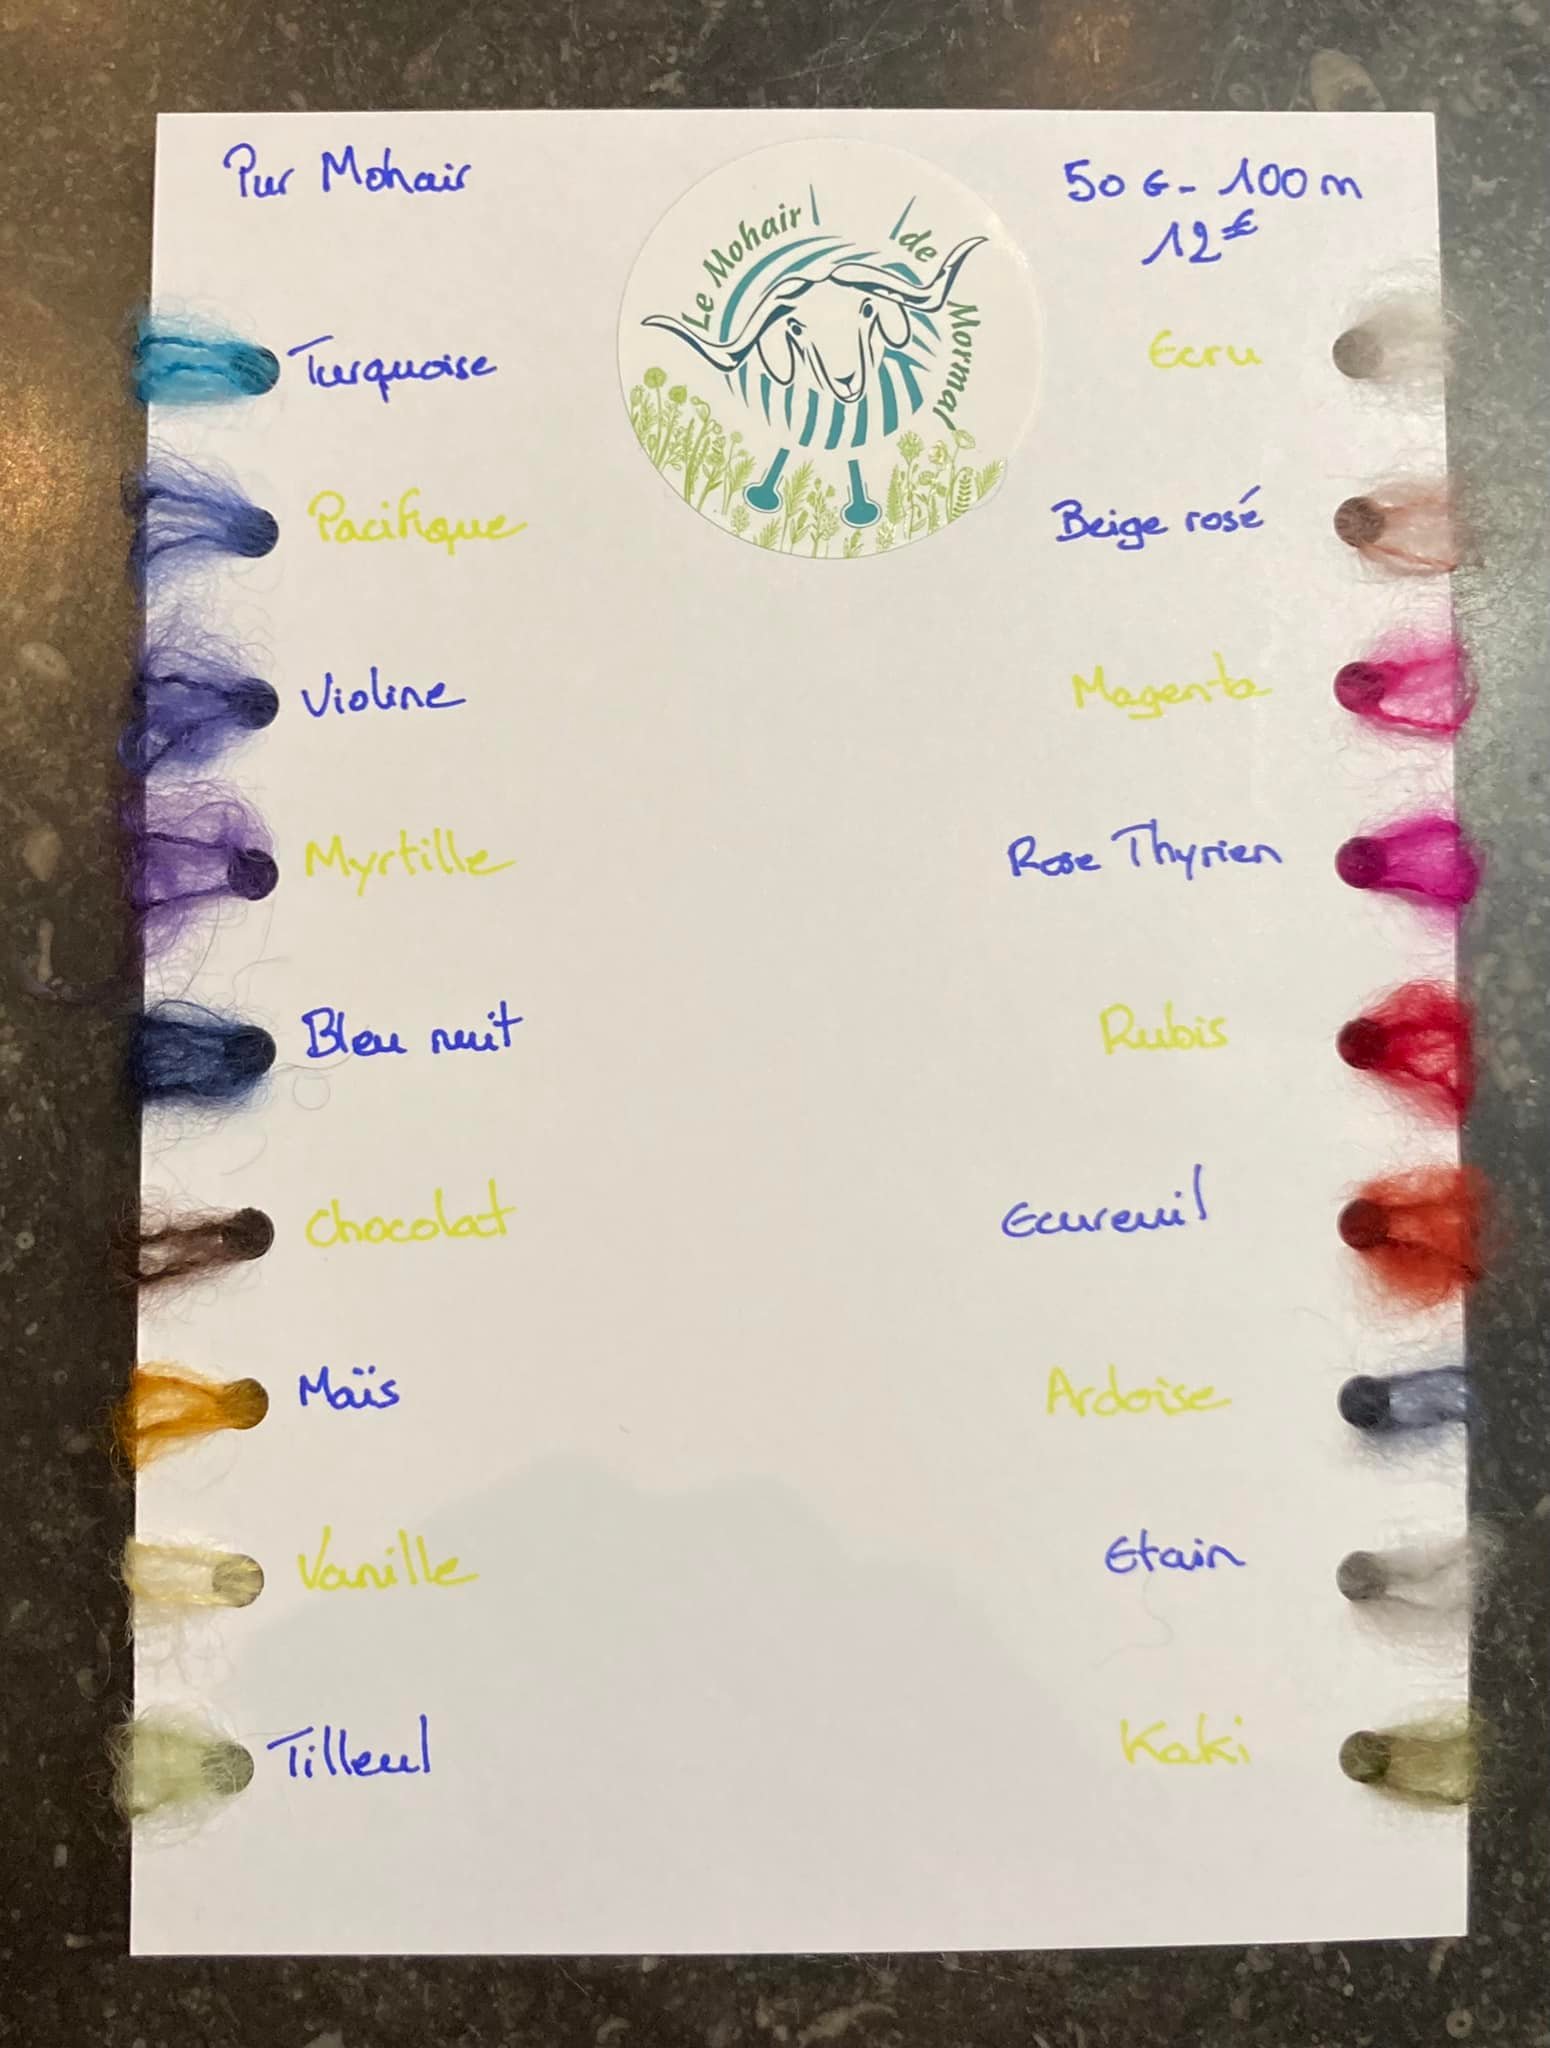 Pur Mohair
50 G - 100 m
12 €
Le Mohair de Mormal
Turquoise
Ecru
Pacifique
Beige rosé
Violine
Magenta
Myrtille
Rose Thyrien
Bleu nuit
Rubis
Chocolat
Ecureuil
Maïs
Ardoise
Vanille
Etain
Tilleul
Kaki